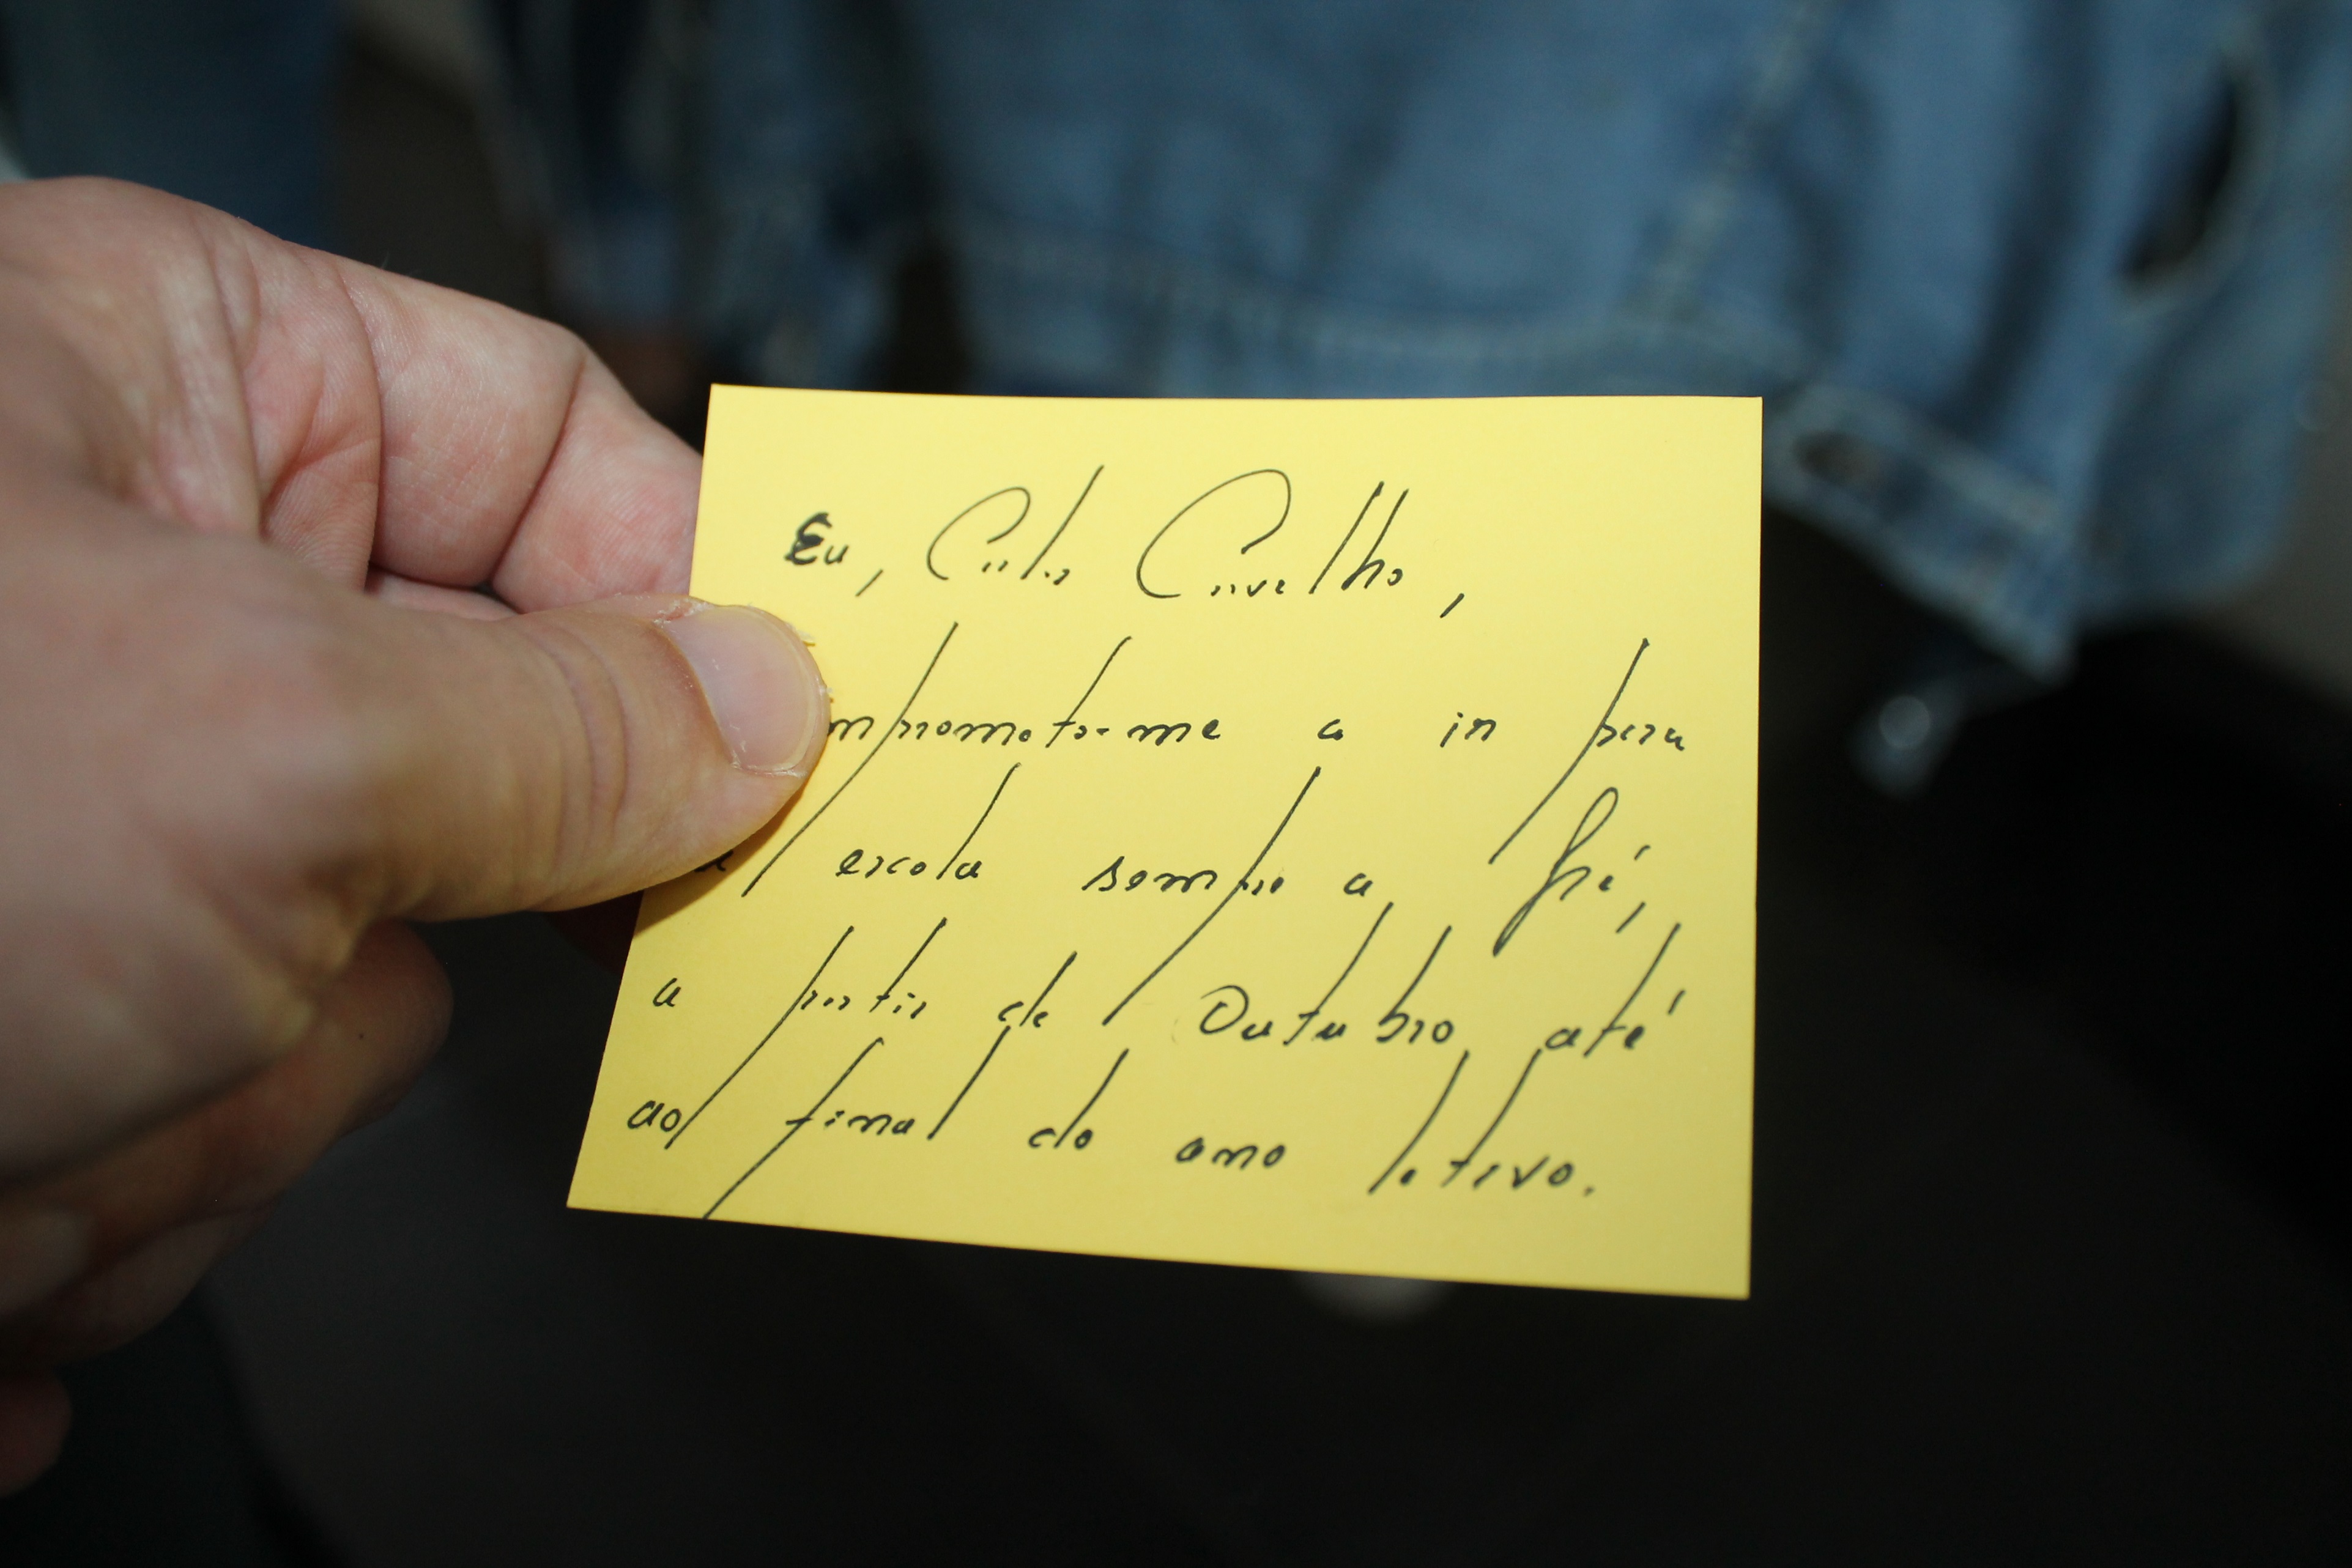 Eu, Carlos Carvalho,
mprometo-me a ir para
a escola sempre a pé,
a partir de Outubro até
ao final do ano letivo.